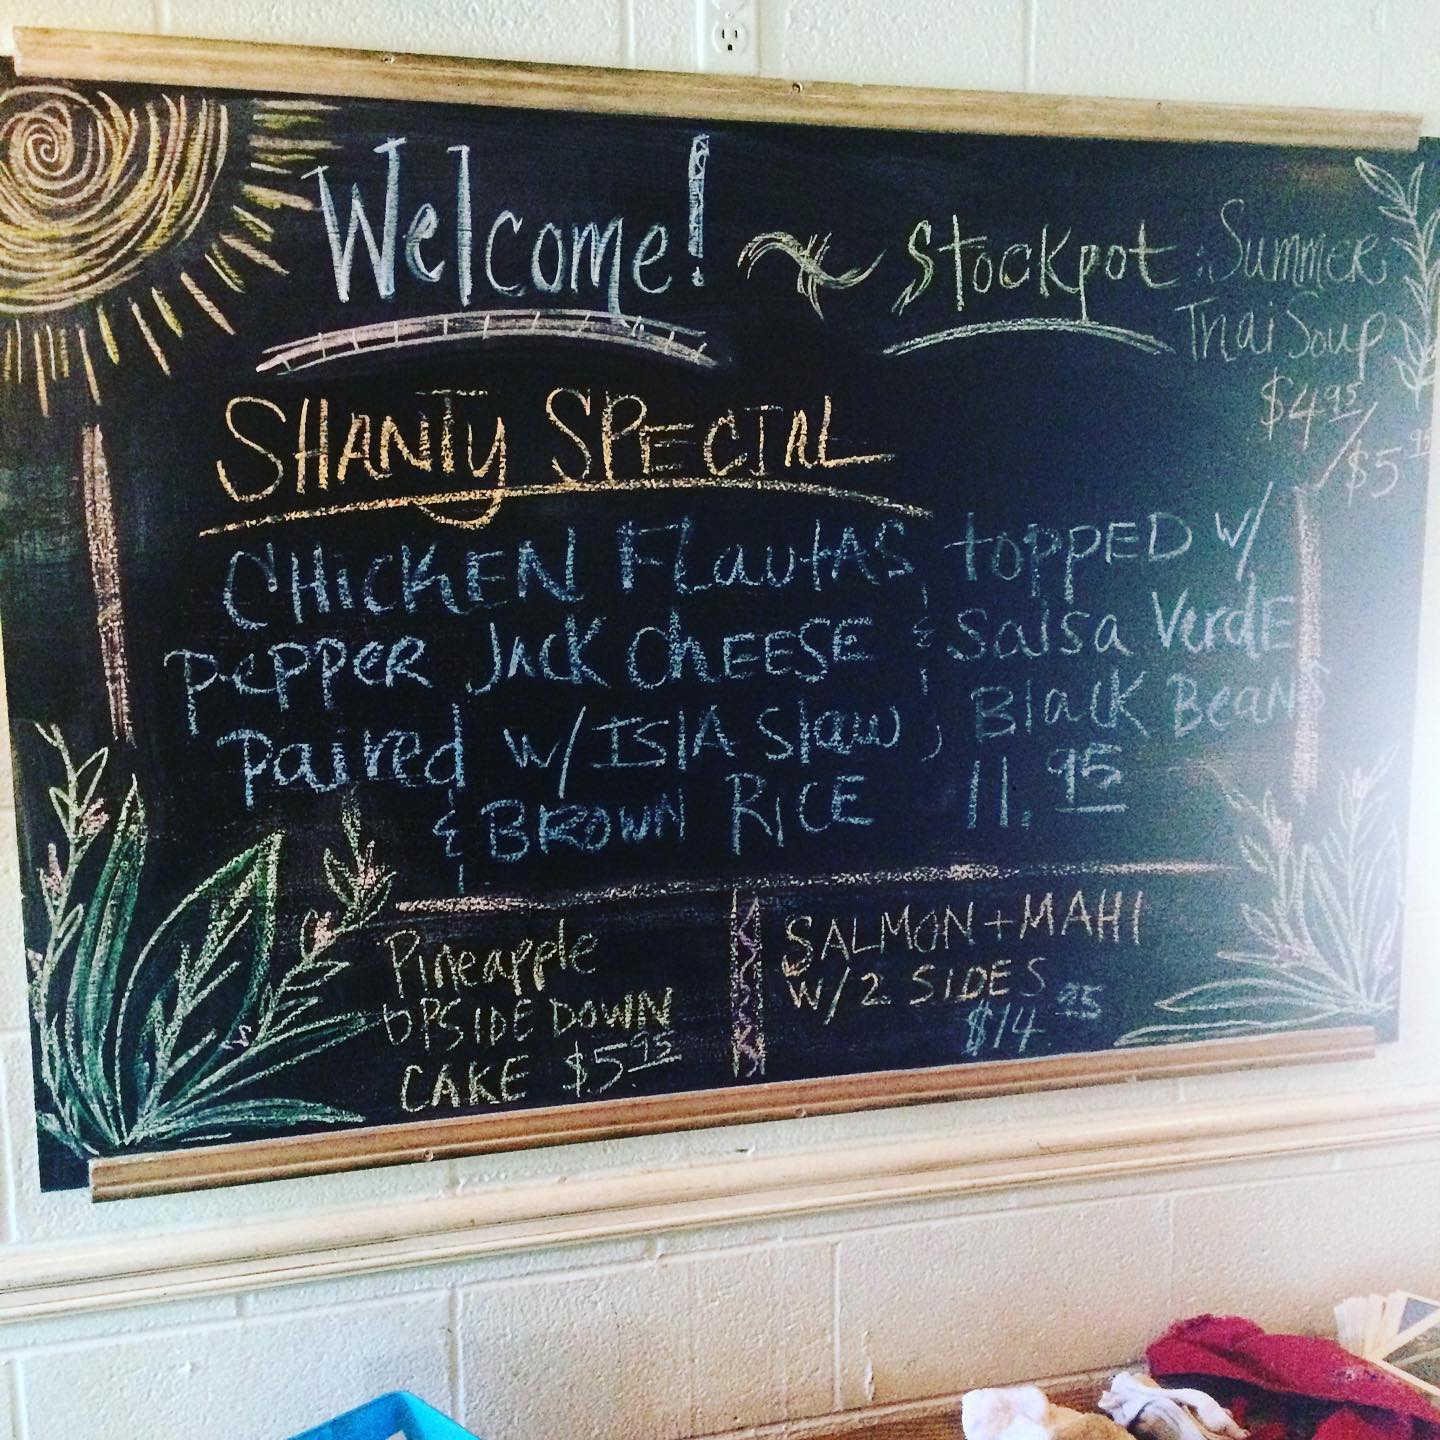 Welcome!
Stockpot: Summer
Thai Soup
$4.95/
$5.95
SHANTY SPECIAL
CHICKEN FLautAS topped w/
pepper Jack CheESE & Salsa VerdE
paired w/ ISlA Slaw, Black BeanS
& BROWN RICE 11.95
Pineapple
UPSIDE DOWN
CAKE $5.95
SALMON + MAHI
W/ 2 SIDES
$14.95